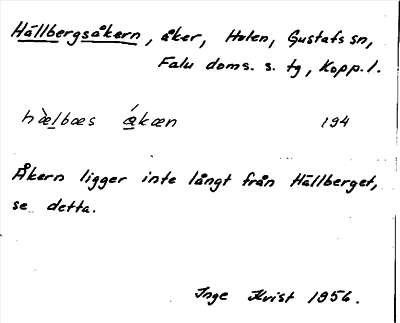 Hällbergsåkern, åker, Holen, Gustafs sn,
Falu doms. s. tg, Kopp. l.
hæ̀lbæs ǻkæn 194
Åkern ligger inte långt från Hällberget,
se detta.
Inge Kvist 1956.